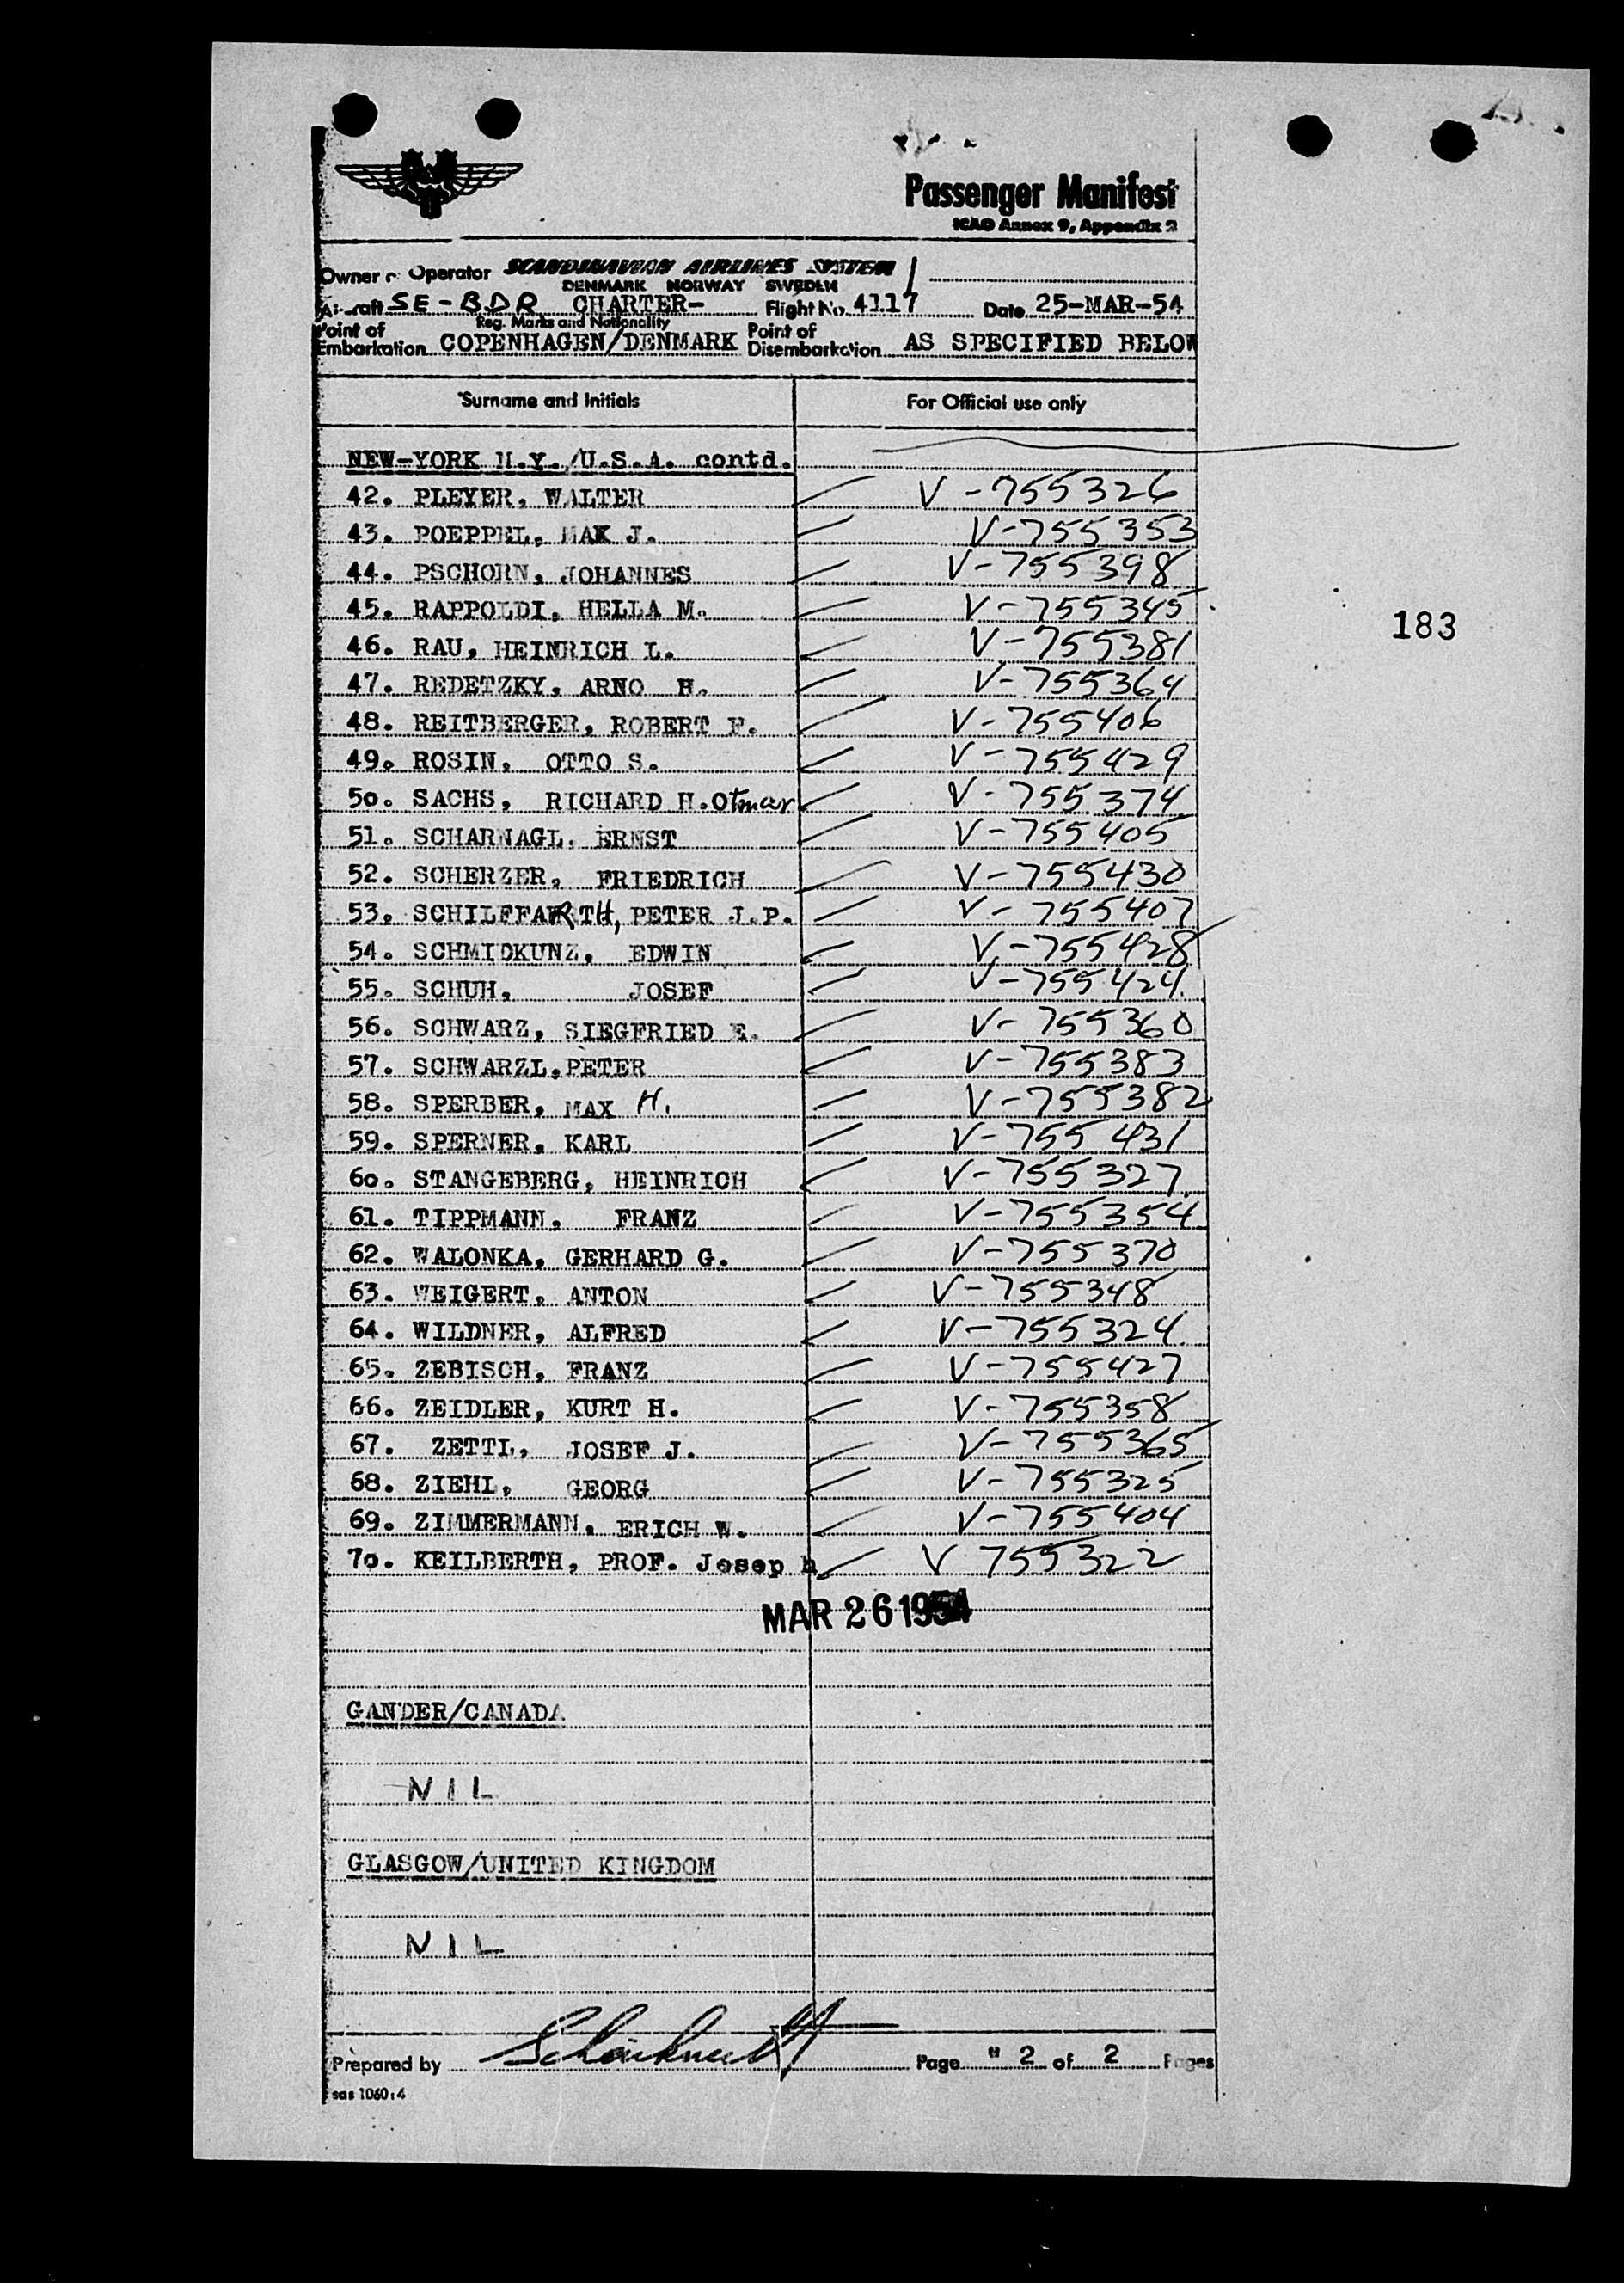 Passenger Manifest
ICAO Annex 9, Appendix 2
Owner or Operator SCANDINAVIAN AIRLINES SYSTEM
DENMARK NORWAY SWEDEN
Aircraft SE-BDR CHARTER- Flight No. 4117 Date 25-MAR-54
Reg. Marks and Nationality
Point of Embarkation COPENHAGEN/DENMARK Point of Disembarkation AS SPECIFIED BELOW
Surname and Initials For Official use only
NEW-YORK N.Y./U.S.A. contd.
42. PLEYER, WALTER V-755326
43. POEPPEL, MAX J. V-755353
44. PSCHORN, JOHANNES V-755398
45. RAPPOLDI, HELLA M. V-755345
183
46. RAU, HEINRICH L. V-755381
47. REDETZKY, ARNO H. V-755364
48. REITBERGER, ROBERT F. V-755406
49. ROSIN, OTTO S. V-755429
50. SACHS, RICHARD H. Otmar V-755374
51. SCHARNAGL, ERNST V-755405
52. SCHERZER, FRIEDRICH V-755430
53. SCHILFFARTH, PETER J.P. V-755407
54. SCHMIDKUNZ, EDWIN V-755428
55. SCHUH, JOSEF V-755424
56. SCHWARZ, SIEGFRIED E. V-755360
57. SCHWARZL, PETER V-755383
58. SPERBER, MAX H. V-755382
59. SPERNER, KARL V-755431
60. STANGEBERG, HEINRICH V-755327
61. TIPPMANN, FRANZ V-755354
62. WALONKA, GERHARD G. V-755370
63. WEIGERT, ANTON V-755348
64. WILDNER, ALFRED V-755324
65. ZEBISCH, FRANZ V-755427
66. ZEIDLER, KURT H. V-755358
67. ZETTL, JOSEF J. V-755365
68. ZIEHL, GEORG V-755325
69. ZIMMERMANN, ERICH W. V-755404
70. KEILBERTH, PROF. Joseph V 755322
MAR 26 1954
GANDER/CANADA
NIL
GLASGOW/UNITED KINGDOM
NIL
Prepared by Page " 2 of 2 Pages
sas 1060:4